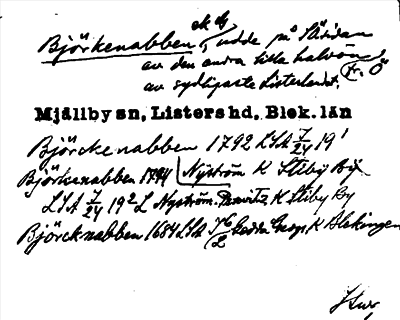 Björkenabben, udde på S sidan
av den andra lilla halvön
av sydligaste Listerlandet.
Mjällby sn, Listers hd, Blek. län
Björckenabben 1792 LSA 7/24 19¹
Björkenabben 1794 Nyström K Stiby By
LSA 7/24 19² L Nyström K Stiby By
Björcknabben 1684 LSA K Blekingen